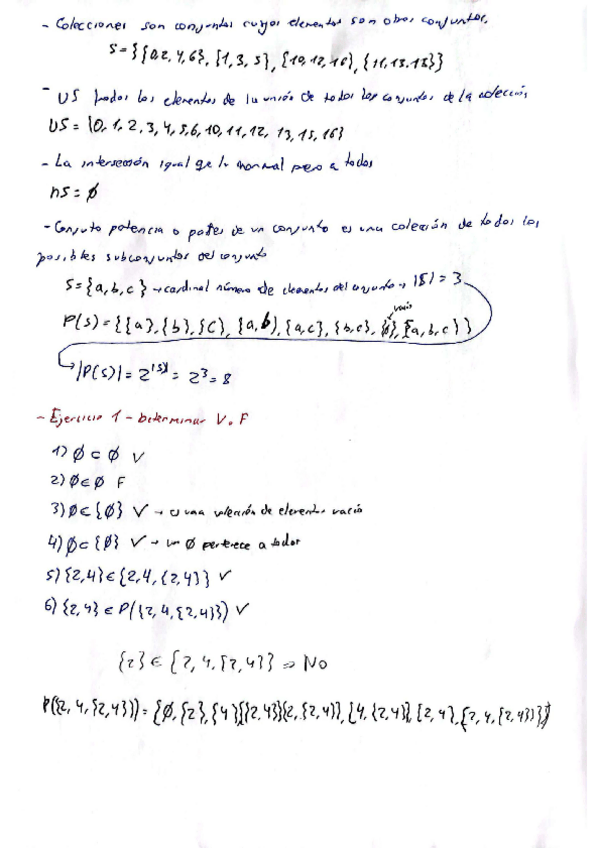 - Colecciones son conjuntos cuyos elementos son otros conjuntos.
S={{0,2,4,6},{1,3,5},{10,12,16},{11,13,15}}
- US todos los elementos de la unión de todos los conjuntos de la colección
US={0,1,2,3,4,5,6,10,11,12,13,15,16}
- La intersección igual que la normal pero a todos
∩S=∅
- Conjuto potencia o partes de un conjunto es una colección de todos los
posibles subconjuntos del conjunto
S={a,b,c}→cardinal número de elementos del conjunto→|S|=3
vacio
P(S)={{a},{b},{C},{a,b},{a,c},{b,c},{∅},{a,b,c}}
|P(S)|=2^|S|=2^3=8
- Ejercicio 1 - Determinar V o F
1) ∅⊂∅ V
2) ∅∈∅ F
3) ∅∈{∅} V → es una colección de elementos vacio
4) ∅⊂{∅} V → un ∅ pertenece a todos
5) {2,4}∈{2,4,{2,4}} V
6) {2,4}∈P({2,4,{2,4}}) V
{2}∈{2,4,{2,4}}⇒No
P({2,4,{2,4}})={∅,{2},{4}{{2,4}}{2,{2,4}},{4,{2,4}},{2,4},{2,4,{2,4}}}